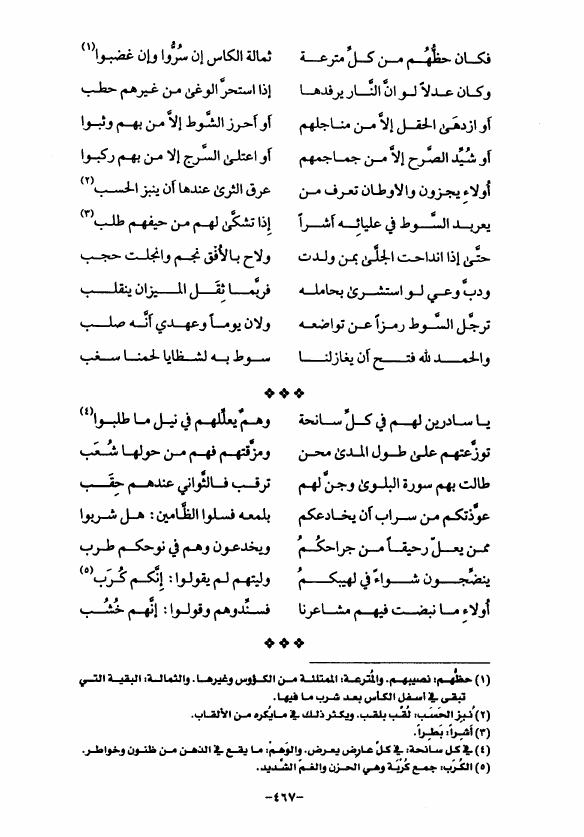 فكـان حظُّهُـم مـن كـلِّ مترعـة ثمالة الكاس إن سُرُّوا وإن غضبوا(١)
وكان عدلاً لـو انَّ النَّـار يرفدهـا إذا استحرَّ الوغىٰ من غيرهم حطب
أو ازدهىٰ الحقـل إلاَّ مـن مناجلهم أو أحرز الشَّوط إلاَّ من بهم وثبوا
أو شُيِّد الصَّرح إلاَّ من جماجمهم أو اعتلىٰ السَّرج إلا من بهم ركبوا
أولاءِ يجزون والاوطان تعرف من عرق الثرىٰ عندها أن ينبز الحسب(٢)
يعربد السَّـوط في عليائـه أشـراً إذا تشكَّىٰ لهم من حيفهم طلب(٣)
حتَّىٰ إذا انداحت الجلَّىٰ بمن ولدت ولاح بـالأفْق نجم وانجلت حجب
ودبَّ وعـي لـو استشـرىٰ بحاملـه فربَّمـا ثِقَـل المـيزان ينقلـب
ترجَّل السَّوط رمـزاً عـن تواضعـه ولان يومـاً وعهـدي أنَّـه صلـب
والحمـد لله فتـح أن يغازلنـا سـوط بـه لشظايا لحمنـا سـغب
❖❖❖
يـا سـادرين لهـم في كـلِّ سـانحة وهـمٌ يعلِّلهـم في نيـل مـا طلبـوا(٤)
توزَّعتهم علىٰ طول المدىٰ محن ومزَّقتهـم فهـم مـن حولهـا شُـعَب
طالت بهم سورة البلوىٰ وجنَّ لهم ترقـب فـالثَّواني عندهـم حِقَـب
عوَّذتكم من سراب أن يخادعكم بلمعه فسلوا الظَّامين: هـل شربوا
ممـن يعـلّ رحيقـاً مـن جراحكـمُ ويخدعون وهم في نوحكـم طـرب
ينضِّجـون شـواءً في لهيبكـمُ وليتهم لم يقولـوا: إنَّكـم كُـرَب(٥)
أولاءِ مـا نبضـت فيهـم مشـاعرنا فسنِّدوهم وقولـوا: إنَّهـم خُشُـب
❖❖❖
(١) حظُّهم: نصيبهم. والمُترعة: الممتلئة من الكؤوس وغيرها. والثمالة: البقية التي
تبقى في أسفل الكأس بعد شرب ما فيها.
(٢) نُبِزَ الحَسَب: لُقِّب بلقب. ويكثر ذلك في ما يُكره من الألقاب.
(٣) أشراً: بَطَراً.
(٤) في كل سانحة: في كلّ عارض يعرض. والوَهمُ: ما يقع في الذهن من ظنون وخواطر.
(٥) الكُرَب: جمع كُرْبَة وهي الحزن والغمّ الشديد.
-٤٦٧-